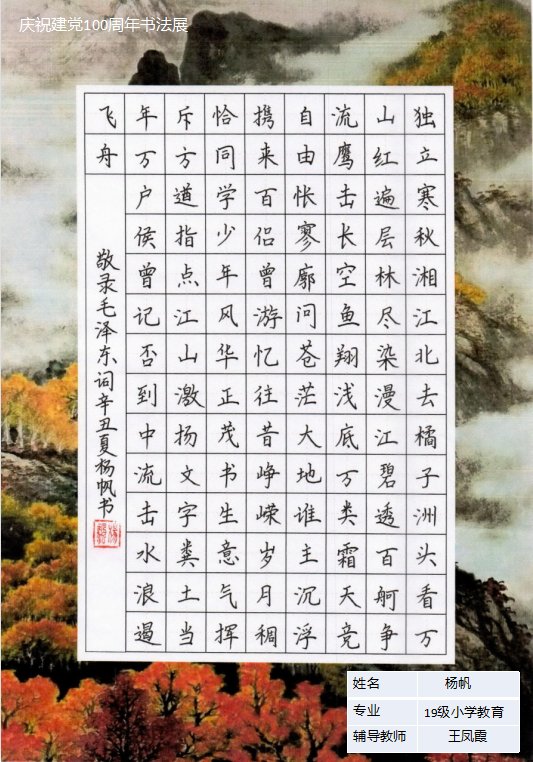 庆祝建党100周年书法展
独立寒秋湘江北去橘子洲头看万
山红遍层林尽染漫江碧透百舸争
流鹰击长空鱼翔浅底万类霜天竞
自由怅寥廓问苍茫大地谁主沉浮
携来百侣曾游忆往昔峥嵘岁月稠
恰同学少年风华正茂书生意气挥
斥方遒指点江山激扬文字粪土当
年万户侯曾记否到中流击水浪遏
飞舟
敬录毛泽东词辛丑夏杨帆书
姓名 杨帆
专业 19级小学教育
辅导教师 王凤霞